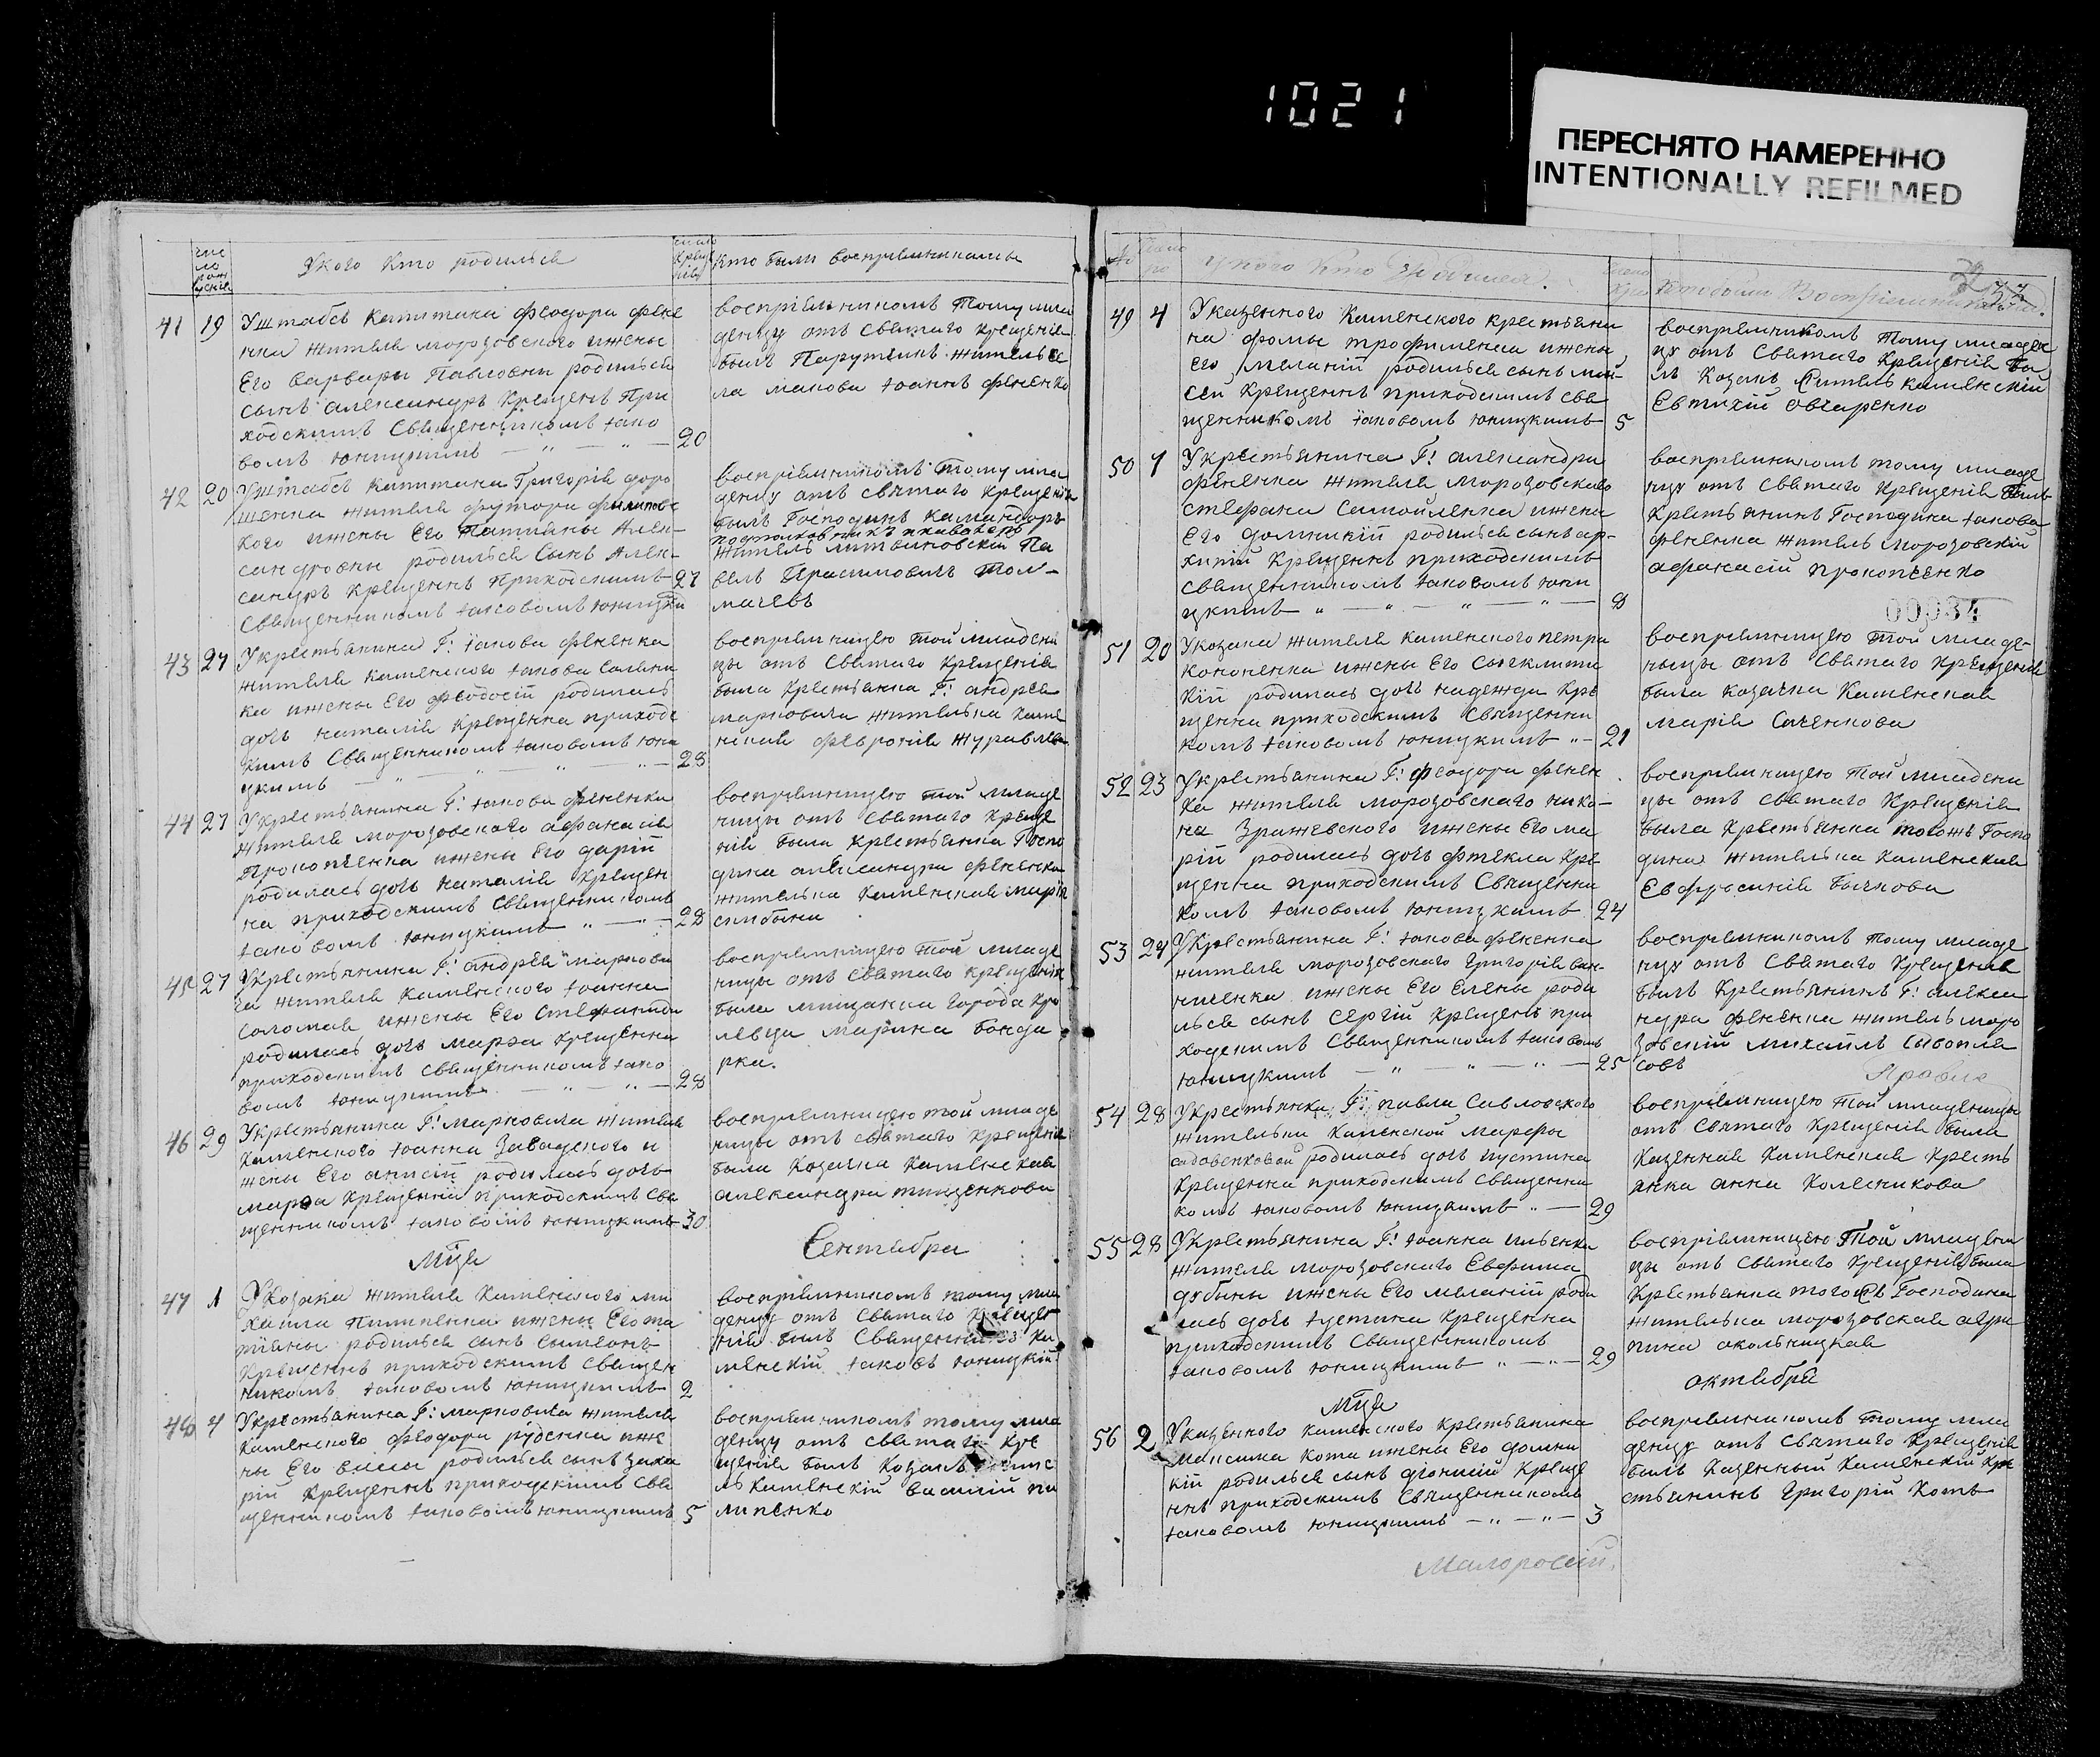 1021
ПЕРЕСНЯТО НАМЕРЕННО
INTENTIONALLY REFILMED
число рождения
У кого кто родился
число крещения
кто были восприемниками
41 19
У штабсъ капитана Феодора Фене
нка жителя морозовского ижены
Его варвары Павловны родился
сынъ александръ крещенъ При
ходскимъ Священникомъ Іако
вомъ Юницкимъ — „ — „ — 20
воспріемникомъ тому мла
денцу отъ святаго крещенія
былъ Парутчикъ житель се
ла макова Іоаннъ Фененко
42 20
У штабсъ капитана Григорія доро
шенка жителя футора филипов
кого ижены Его Татияны Алек-
сандровны родился Сынъ Алек-
сандръ крещенъ приходскимъ 27
Священникомъ Іаковомъ Юницки
воспріемникомъ тому мла
денцу отъ святаго крещенія
былъ Господинъ
житель литвиновскій Па
велъ Герасимовичъ Тол-
мачевъ
43 27
У крестьянина Г: Іакова Фененка
жителя каменского Іакова
ка ижены Его Феодосій родилась
дочь наталія крещенна приходс
кимъ Священникомъ Іаковомъ Юни
цкимъ — „ — „ — „ — 28
воспріемницею той младени
цы отъ Святаго крещенія
была крестьянка Г: андрея
марковича жителька каме
нская февронія журавлева
44 27
У крестьянина Г: Іакова Фененка
жителя морозовского афанасія
Прокопченка ижены Его дарій
родилась дочь наталія крещен
на приходскимъ Священникомъ
Іаковомъ Юницкимъ „ — „ — 28
воспріемницею той младе
ницы отъ Святаго креще
нія была крестьянка Госпо
дина александра Фененка
жителька каменская марія
45 27
У крестьянина Г: андрея маркови
ча жителя каменского Іоанна
Соломая ижены Его Стефаниды
родилась дочь марѳа крещенна
приходскимъ священникомъ Іако
вомъ Юницкимъ — „ — „ — 28
воспріемницею той младе
ницы отъ святаго крещенія
была мищанка города Кро
левца марина бонда
рка.
46 29
У крестьянина Г: марковича жителя
каменского Іоанна Завадского и
жены Его анисій родилась дочь
марѳа крещенна приходскимъ Свя
щенникомъ Іаковомъ Юницкимъ 30
воспріемницею той младе
ницы отъ святаго крещенія
была козачка каменская
александра тищенкова
Мца Сентября
47 1
У козака жителя каменского ми
хаила Пилипенка ижены Его та
тіяны родился сынъ симеонъ
крещеннъ приходскимъ священ
никомъ Іаковомъ Юницкимъ 2
воспріемникомъ тому мла
денцу отъ Святаго крещен
нія былъ Священникъ ка
менскій Іаковъ Юницкій
48 4
У крестьянина Г: марковича жителя
каменского феодора руденка иже
ны Его елены родился сынъ заха
рій крещеннъ приходскимъ Свя
щенникомъ Іаковомъ Юницкимъ 5
воспріемникомъ тому мла
денцу отъ святаго кре
щенія былъ козакъ жите
ль каменскій василій пи
липенко
У кого кто родился.
кто были воспріемниками.
49 4
У казенного каменского крестьяни
на фомы трофименка ижены
Его меланій родился сынъ мой-
сей крещеннъ приходскимъ свя
щенникомъ Іаковомъ Юницкимъ 5
воспріемникомъ тому младен
цу отъ Святаго крещенія бы
лъ козакъ житель каменскій
Евтихій овчаренко
50 7
У крестьянина Г: александра
Фененка жителя морозовского
стефана Самойленка ижены
Его домникій родился сынъ ар-
хипій крещеннъ приходскимъ
священникомъ Іаковомъ Юни
цкимъ „ — „ — „ — „ — 8
воспріемникомъ тому младе
нцу отъ Святаго крещенія былъ
крестьянинъ Господина Іакова
Фененка житель морозовскій
афанасій прокопченко
00034
51 20
У козака жителя каменского петра
кононенка ижены Его Сигклити
кій родилась дочь надежда кре
щенна приходскимъ священни
комъ Іаковомъ Юницкимъ „ — 21
воспріемницею той младе-
ницы отъ Святаго крещенія
была козачка каменская
марія Саченкова
52 23
У крестьянина Г: феодора Фенен
ка жителя морозовского нико-
на Зражевского ижены Его ма
рій родилась дочь фтекла кре
щенна приходскимъ Священни
комъ Іаковомъ Юницкимъ 24
воспріемницею той младени
цы отъ святаго крещенія
была крестьянка тогожъ Госпо
дина жителька каменская
Евфросинія бычкова
53 24
У крестьянина Г: Іакова фененка
жителя морозовского григорія ван-
ниченка ижены Его Елены роди
лься сынъ сергій крещенъ при
ходскимъ Священникомъ Іаковомъ
Юницкимъ — „ — „ — „ — 25
воспріемникомъ тому младе
нцу отъ Святаго крещенія
былъ крестьянинъ Г: алекса
ндра фененка житель моро
зовскій михаилъ сывопля
совъ
54 28
У крестьянки Г: павла Савловского
жительки каменской марфы
садовенковой родилась дочь иустина
крещенна приходскимъ Священни
комъ Іаковомъ Юницкимъ „ — 29
воспріемницею той младеницы
отъ святаго крещенія была
казенная каменская кресть
янка анна Колесникова
55 28
У крестьянина Г: Іоанна ильенка
жителя морозовского Евфима
дубины ижены Его меланій роди
лась дочь Іустина крещенна
приходскимъ Священникомъ
Іаковомъ Юницкимъ „ — „ — 29
воспріемницею той младени
цы отъ святаго крещенія была
крестьянка тогожъ Господина
жителька морозовская агри
пина акольницкая
Мца октября
56 2
У казенного каменского крестьянина
максима кота ижены Его домни
кій родился сынъ діонисій креще
ннъ приходскимъ священникомъ
Іаковомъ Юницкимъ — „ — „ — 3
воспріемникомъ тому мла
денцу отъ святаго крещенія
былъ казенный каменскій кре
стьянинъ Григорій Котъ
Малоросій.